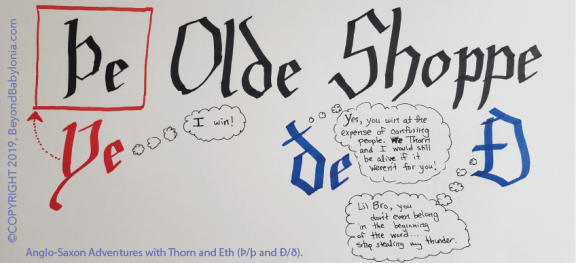 Þe Olde Shoppe
Ye
I win!
ðe
Yes, you win at the
expense of confusing
people. We Thorn
and I would still
be alive if it
weren't for you!
Ð
Lil Bro, you
don't even belong
in the beginning
of the word...
stop stealing my thunder.
Anglo-Saxon Adventures with Thorn and Eth (Þ/þ and Ð/ð).
©COPYRIGHT 2019, BeyondBabylonia.com